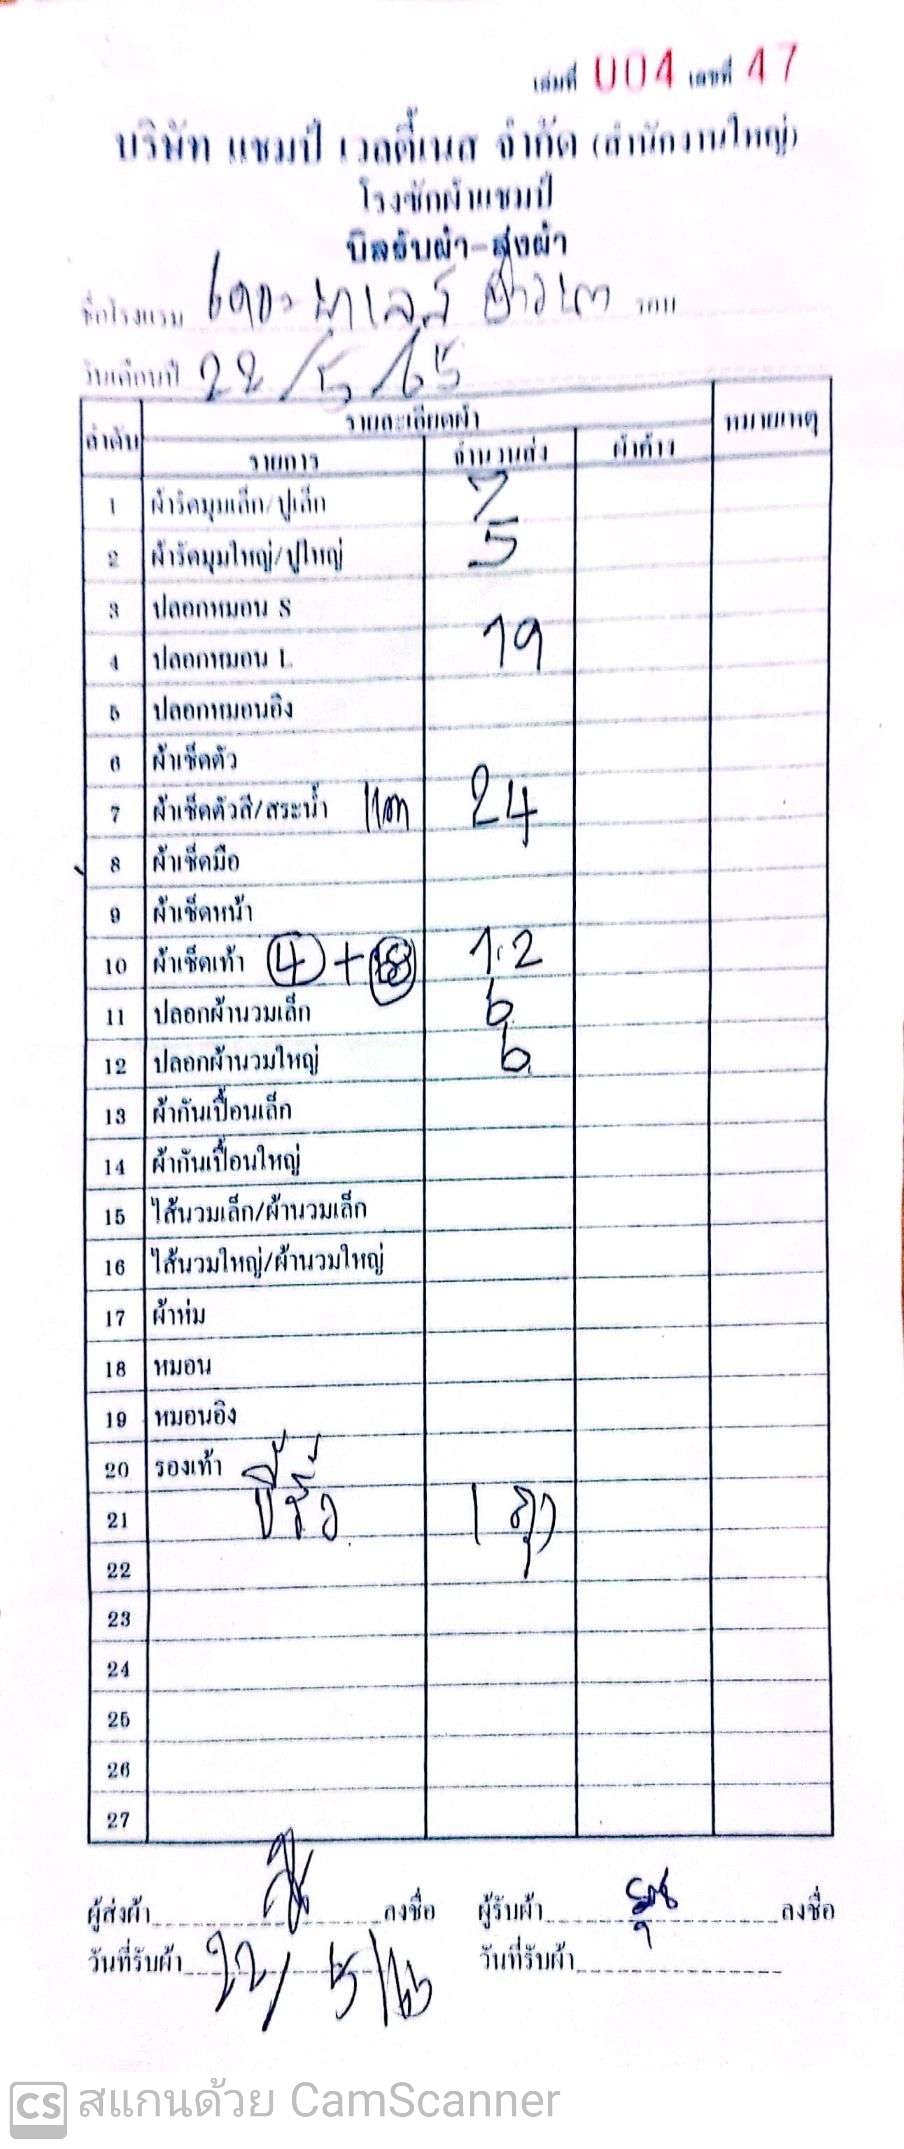 เล่มที่ 004 เลขที่ 47
บริษัท แชมป์ เวลตี้เนส จำกัด (สำนักงานใหญ่)
โรงซักผ้าแชมป์
บิลรับผ้า-ส่งผ้า
ชื่อโรงแรม เดอะ พาเลส รอบ
วันเดือนปี 22/5/65
ลำดับ รายละเอียดผ้า หมายเหตุ
รายการ จำนวนส่ง ผ้าค้าง
1 ผ้ารัดมุมเล็ก/ปูเล็ก 7
2 ผ้ารัดมุมใหญ่/ปูใหญ่ 5
3 ปลอกหมอน S
4 ปลอกหมอน L 19
5 ปลอกหมอนอิง
6 ผ้าเช็ดตัว
7 ผ้าเช็ดตัวสี/สระน้ำ 24
8 ผ้าเช็ดมือ
9 ผ้าเช็ดหน้า
10 ผ้าเช็ดเท้า 4 + 8 12
11 ปลอกผ้านวมเล็ก 6
12 ปลอกผ้านวมใหญ่ 6
13 ผ้ากันเปื้อนเล็ก
14 ผ้ากันเปื้อนใหญ่
15 ไส้นวมเล็ก/ผ้านวมเล็ก
16 ไส้นวมใหญ่/ผ้านวมใหญ่
17 ผ้าห่ม
18 หมอน
19 หมอนอิง
20 รองเท้า
21 ขี้ริ้ว 1 ถุง
22
23
24
25
26
27
ผู้ส่งผ้า ลงชื่อ ผู้รับผ้า ลงชื่อ
วันที่รับผ้า 22/5/65 วันที่รับผ้า
CS สแกนด้วย CamScanner